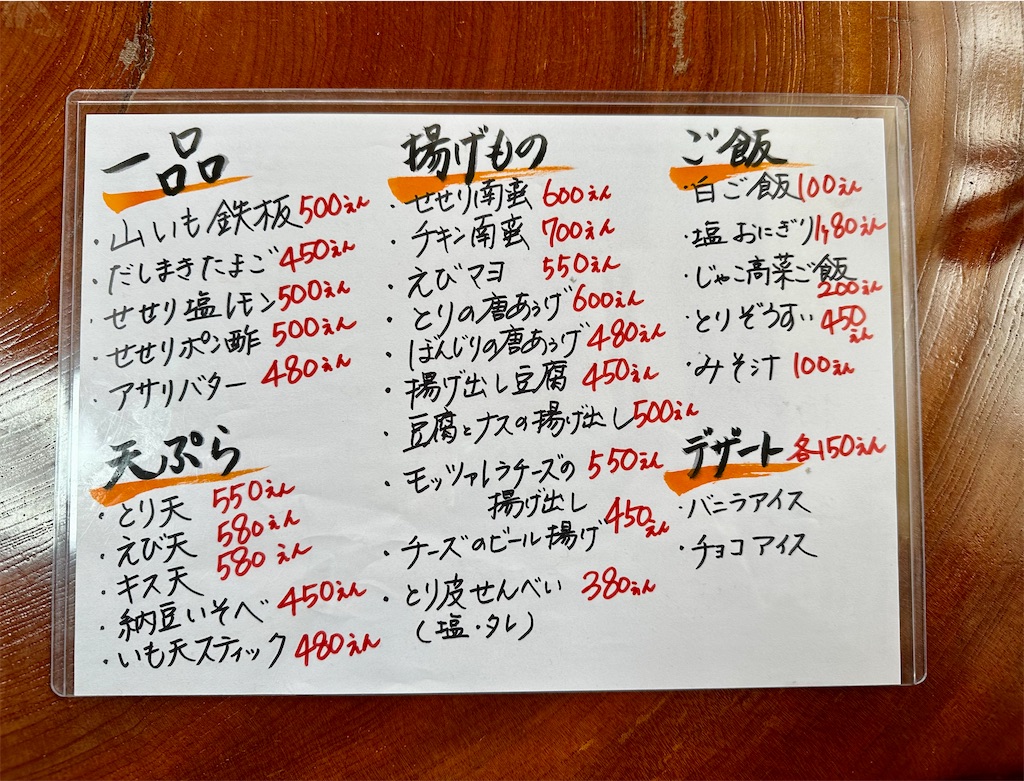 一品
・山いも鉄板 500えん
・だしまきたまご 450えん
・せせり塩レモン 500えん
・せせりポン酢 500えん
・アサリバター 480えん
天ぷら
・とり天 550えん
・えび天 580えん
・キス天 580えん
・納豆いそべ 450えん
・いも天スティック 480えん
揚げもの
・せせり南蛮 600えん
・チキン南蛮 700えん
・えびマヨ 550えん
・とりの唐あげ 600えん
・ぼんじりの唐あげ 480えん
・揚げ出し豆腐 450えん
・豆腐とナスの揚げ出し 500えん
・モッツァレラチーズの 550えん
揚げ出し
・チーズのビール揚げ 450えん
・とり皮せんべい 380えん
(塩・タレ)
ご飯
・白ご飯 100えん
・塩おにぎり 1ケ80えん
・じゃこ高菜ご飯
200えん
・とりぞうすい 450えん
・みそ汁 100えん
デザート 各150えん
・バニラアイス
・チョコアイス